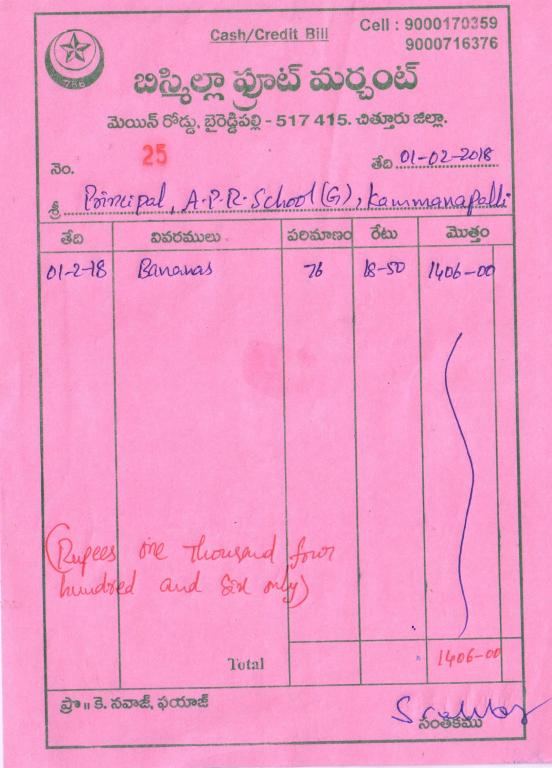 Cash/Credit Bill
Cell : 9000170359
9000716376
786
బిస్మిల్లా ఫ్రూట్ మర్చంట్
మెయిన్ రోడ్డు, బైరెడ్డిపల్లి - 517 415. చిత్తూరు జిల్లా.
నెం. 25 తేది 01-02-2018
శ్రీ Principal, A.P.R. School (G), Kammanapalli
తేది వివరములు పరిమాణం రేటు మొత్తం
01-2-18 Bananas 76 18-50 1406-00
(Rupees one thousand four
hundred and six only)
Total 1406-00
ప్రొ॥ కె. నవాజ్, ఫయాజ్
సంతకము